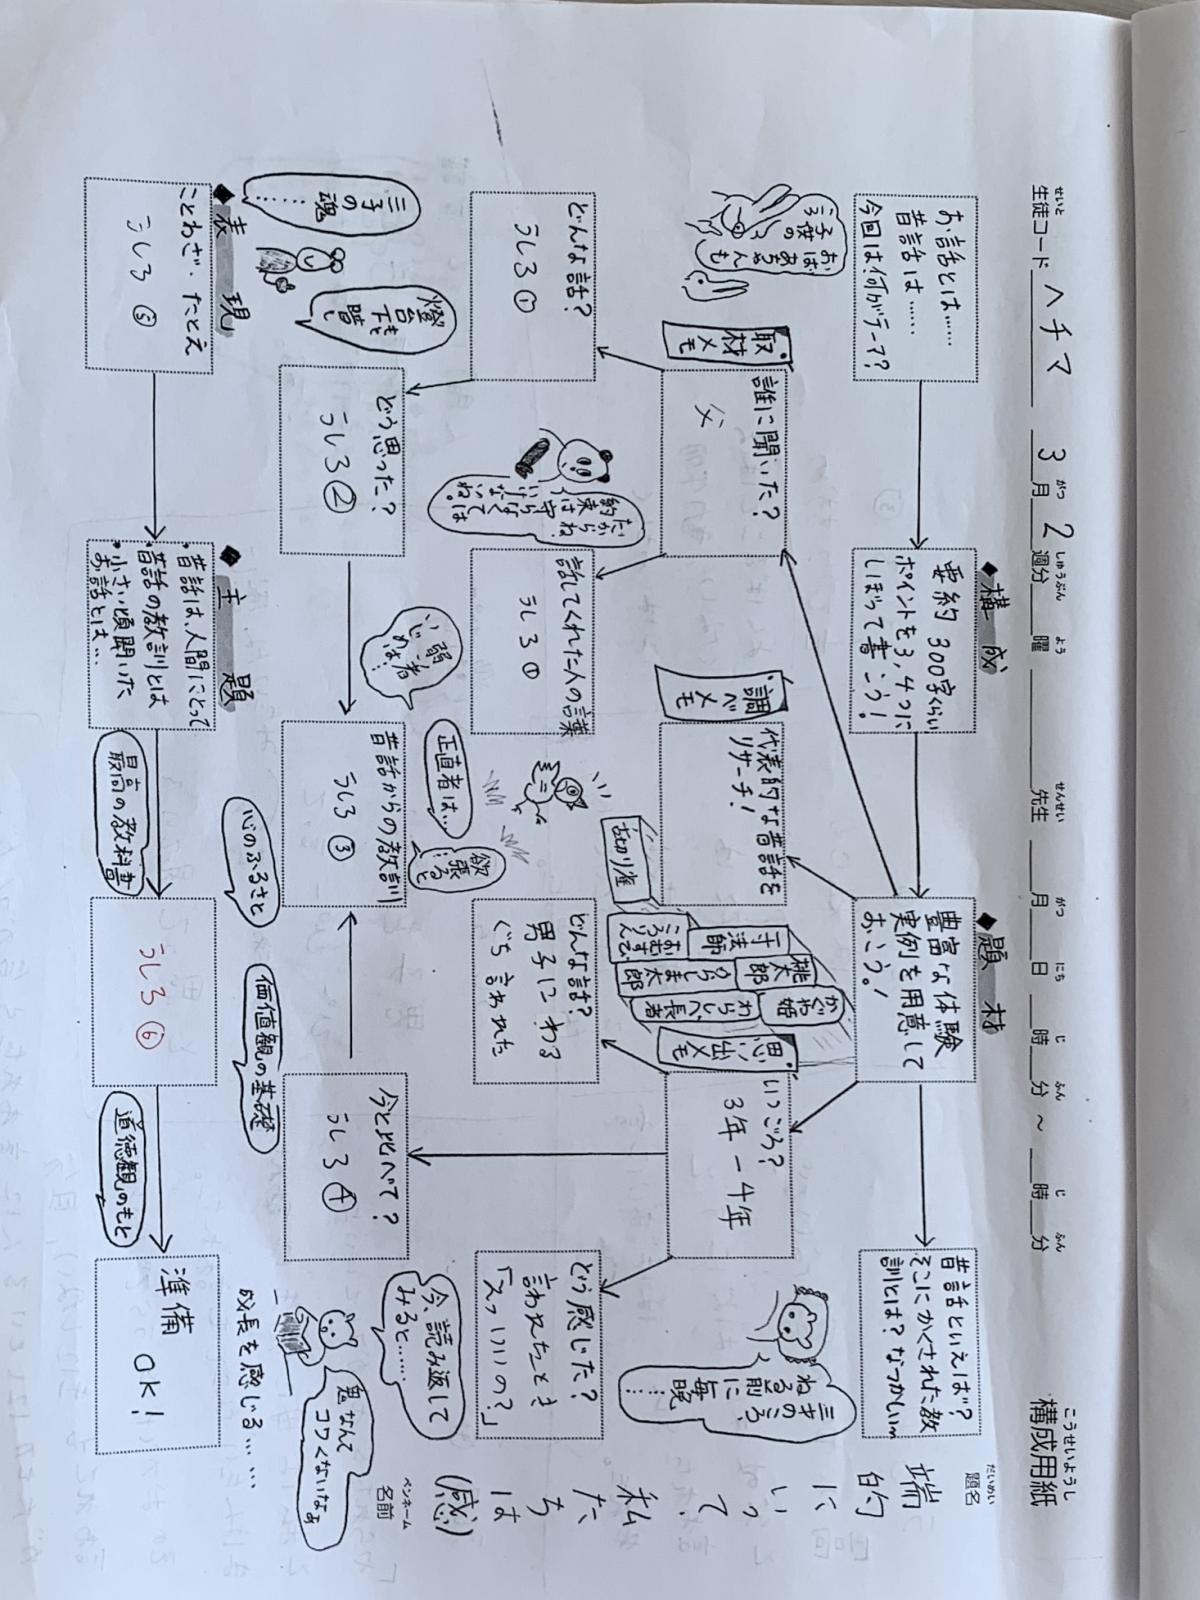 構成用紙
こうせいようし
生徒コード ヘチマ 3月2週分 曜 先生 月 日 時 分 ～ 時 分
せいと がつ しゅうぶん よう せんせい がつ にち じ ふん じ ふん
題名
だいめい
端的
にいって
私たちは
(感)
ペンネーム
名前
お話とは……
昔話は……
今回は何がテーマ??
◆構成
要約 300字くらい
ポイントを3,4つに
しぼって書こう!
◆題材
豊富な体験
実例を用意して
おこう。!
昔話といえば?
そこにかくされた教
訓とは?なつかしいm
おばあちゃんも
子供の
取材メモ
誰に聞いた?
父
調べメモ
代表的な昔話を
リサーチ!
舌切り雀
一寸法師
おむすびころりん
桃太郎
うらしま太郎
かぐや姫
わらしべ長者
思い出メモ
いつごろ?
3年ー4年
三才のころ、
ねる前に
毎晩
……
どんな話?
うしろ①
だから
約束はね、
守らなくては
いけないね。
話してくれた人の言葉
うしろ①
どんな話?
男子にわる
ぐち言われた
どう感じた?
言われたとき
「えっいいの?」
どう思った?
うしろ②
弱い者
いじめは…
正直者は…
欲張ると
昔話からの教訓
うしろ③
今と比べて?
うしろ④
今、読み返して
みると……
鬼なんて
コワくないなぁ
成長を感じる……
三つ子の
魂
……
燈台
もと
下暗し
◆表現
ことわざ・たとえ
うしろ⑤
◆主題
・昔話は人間にとって
・昔話の教訓とは
・小さい頃聞いた
お話とは…
最高の教科書
心のふるさと
価値観の基礎
うしろ⑥
道徳観のもと
準備
OK!